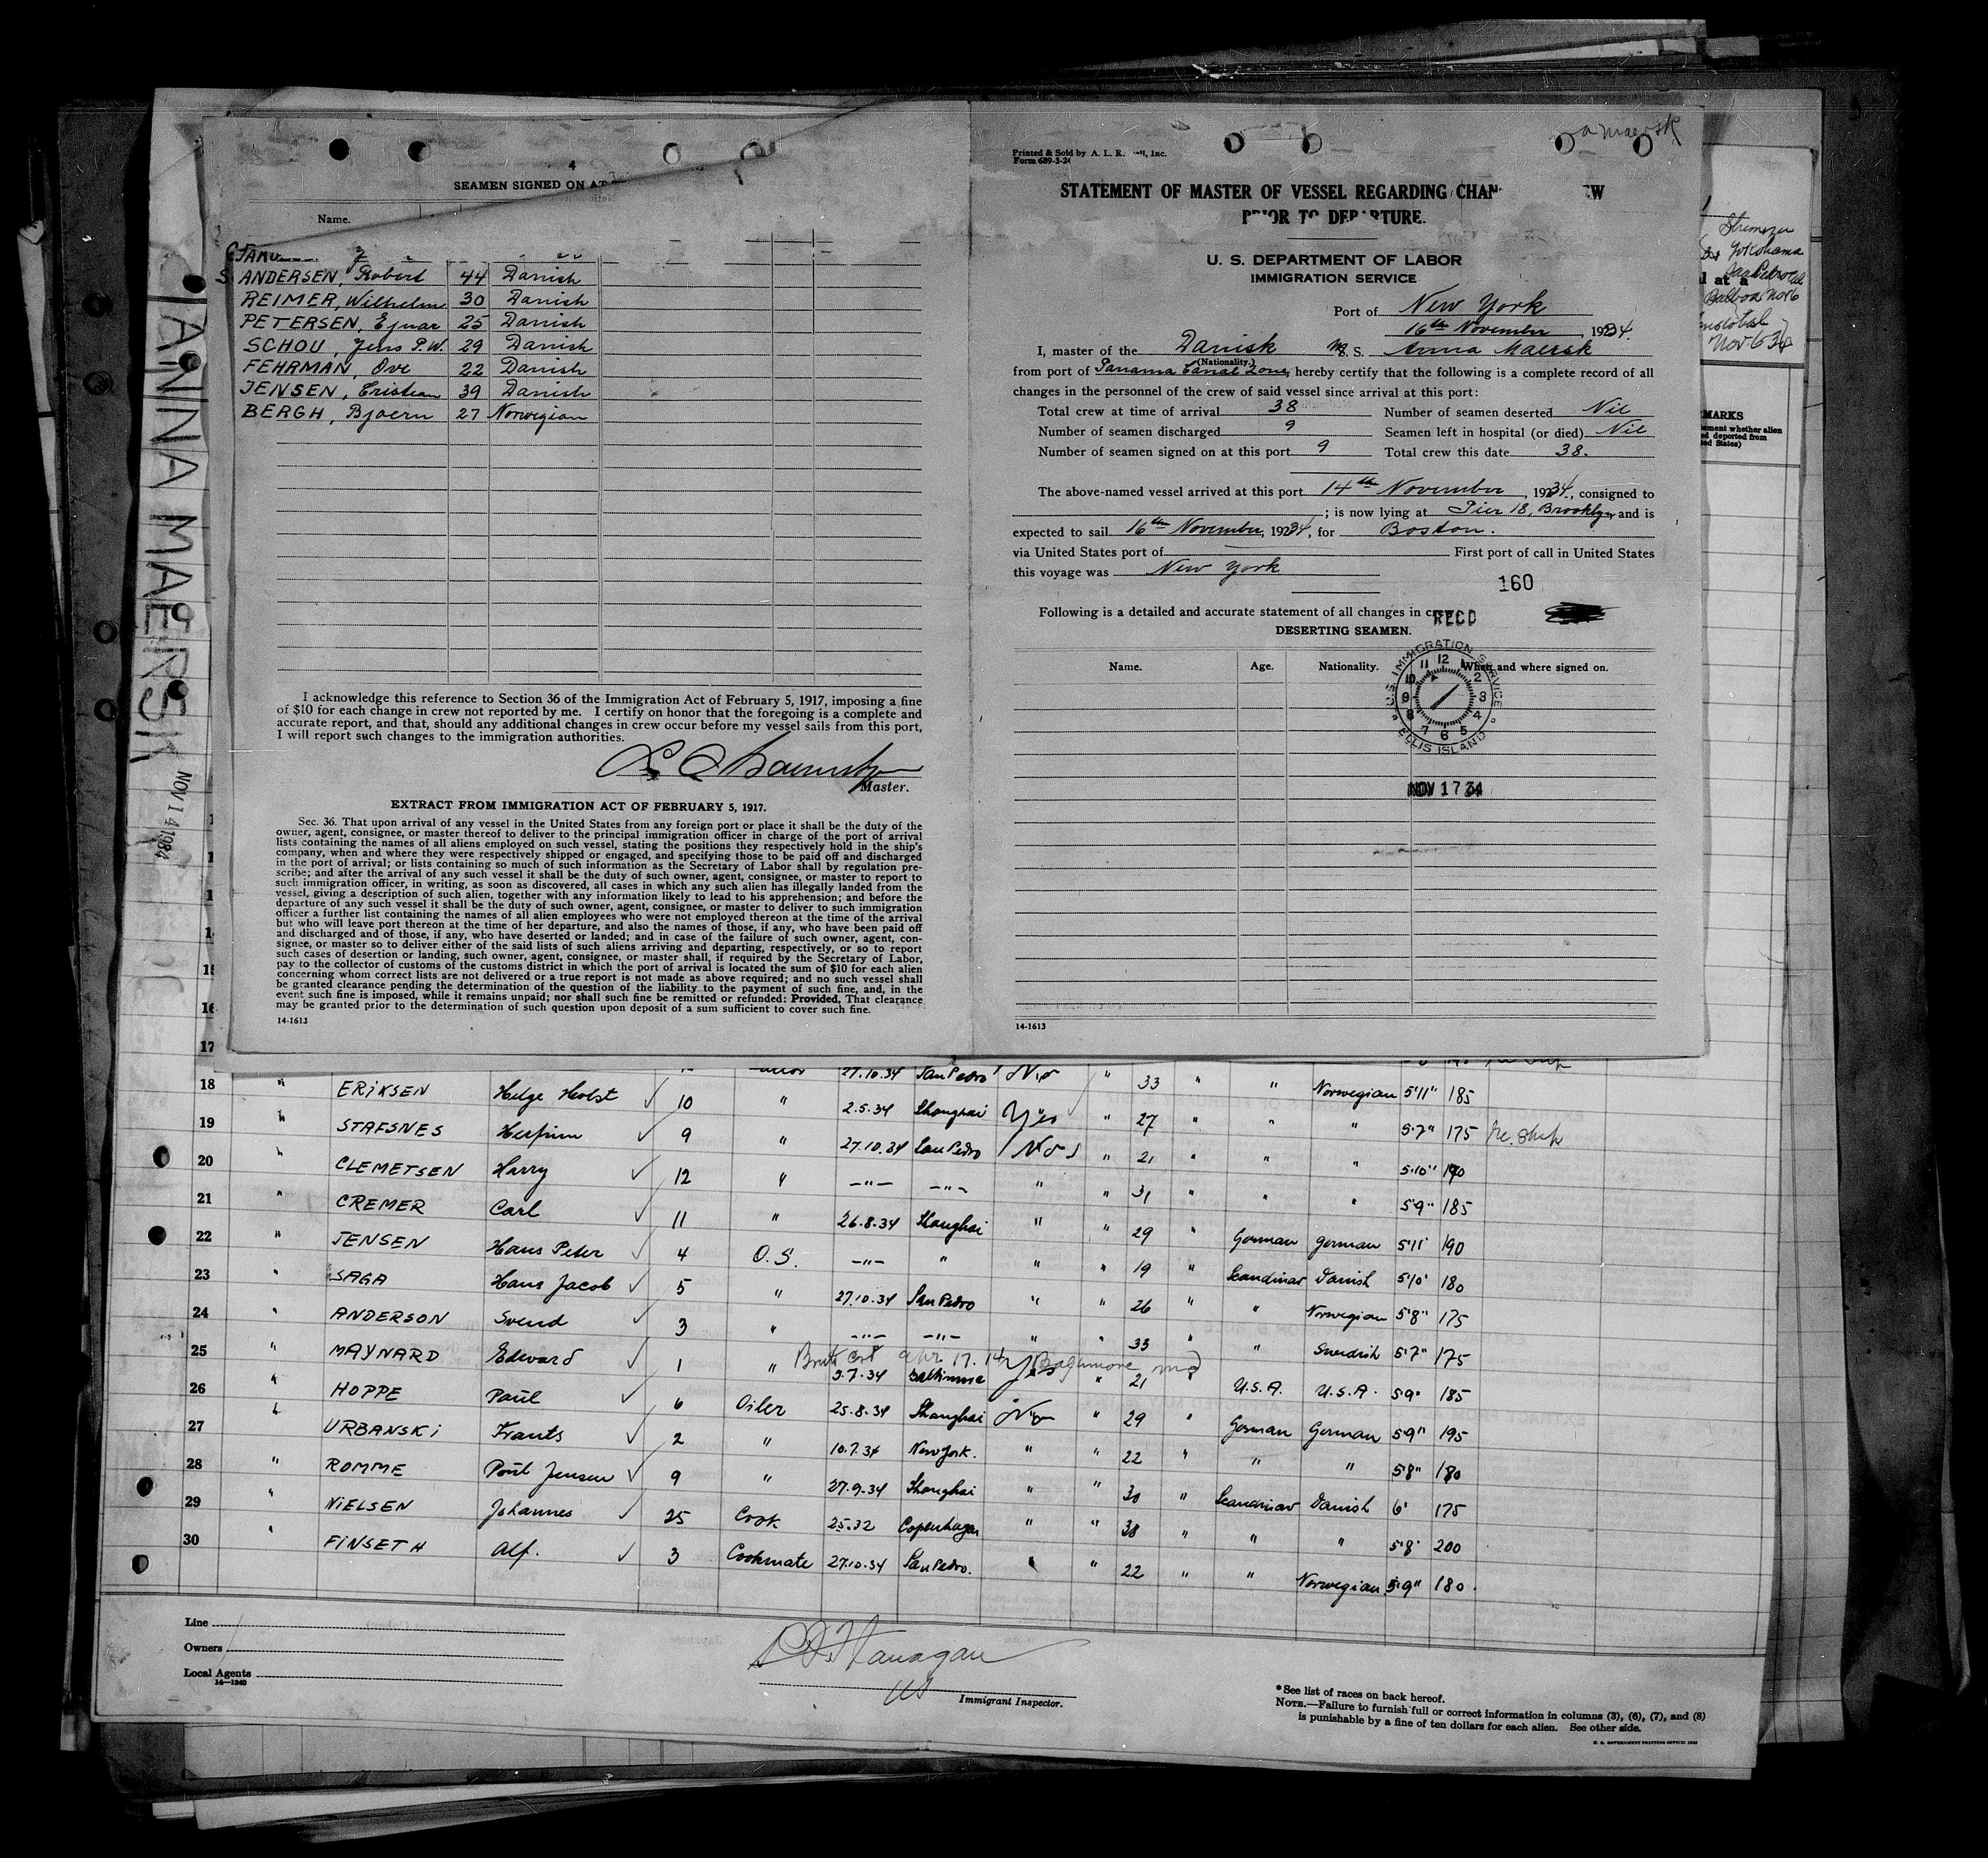 4
SEAMEN SIGNED ON AT
Name.
ANDERSEN, Robert 44 Danish
REIMER, Wilhelm 30 Danish
PETERSEN, Ejnar 25 Danish
SCHOU, Jens P.W. 29 Danish
FEHRMAN, Ove 22 Danish
JENSEN, Cristian 39 Danish
BERGH, Bjoern 27 Norwegian
I acknowledge this reference to Section 36 of the Immigration Act of February 5, 1917, imposing a fine
of $10 for each change in crew not reported by me. I certify on honor that the foregoing is a complete and
accurate report, and that, should any additional changes in crew occur before my vessel sails from this port,
I will report such changes to the immigration authorities.
Master.
EXTRACT FROM IMMIGRATION ACT OF FEBRUARY 5, 1917.
Sec. 36. That upon arrival of any vessel in the United States from any foreign port or place it shall be the duty of the
owner, agent, consignee, or master thereof to deliver to the principal immigration officer in charge of the port of arrival
lists containing the names of all aliens employed on such vessel, stating the positions they respectively hold in the ship's
company, when and where they were respectively shipped or engaged, and specifying those to be paid off and discharged
in the port of arrival; or lists containing so much of such information as the Secretary of Labor shall by regulation pre-
scribe; and after the arrival of any such vessel it shall be the duty of such owner, agent, consignee, or master to report to
such immigration officer, in writing, as soon as discovered, all cases in which any such alien has illegally landed from the
vessel, giving a description of such alien, together with any information likely to lead to his apprehension; and before the
departure of any such vessel it shall be the duty of such owner, agent, consignee, or master to deliver to such immigration
officer a further list containing the names of all alien employees who were not employed thereon at the time of the arrival
but who will leave port thereon at the time of her departure, and also the names of those, if any, who have been paid off
and discharged and of those, if any, who have deserted or landed; and in case of the failure of such owner, agent, con-
signee, or master so to deliver either of the said lists of such aliens arriving and departing, respectively, or so to report
such cases of desertion or landing, such owner, agent, consignee, or master shall, if required by the Secretary of Labor,
pay to the collector of customs of the customs district in which the port of arrival is located the sum of $10 for each alien
concerning whom correct lists are not delivered or a true report is not made as above required; and no such vessel shall
be granted clearance pending the determination of the question of the liability to the payment of such fine, and, in the
event such fine is imposed, while it remains unpaid; nor shall such fine be remitted or refunded: Provided, That clearance
may be granted prior to the determination of such question upon deposit of a sum sufficient to cover such fine.
14-1613
a maersk
Printed & Sold by A. L. R. Inc.
Form 689-3-24
STATEMENT OF MASTER OF VESSEL REGARDING CHAN EW
PRIOR TO DEPARTURE.
U. S. DEPARTMENT OF LABOR
IMMIGRATION SERVICE
Port of New York
16th November, 1934.
I, master of the Danish M. S. Anna Maersk
(Nationality.)
from port of Panama Canal Zone, hereby certify that the following is a complete record of all
changes in the personnel of the crew of said vessel since arrival at this port:
Total crew at time of arrival 38 Number of seamen deserted Nil
Number of seamen discharged 9 Seamen left in hospital (or died) Nil
Number of seamen signed on at this port 9 Total crew this date 38.
The above-named vessel arrived at this port 14th November, 1934, consigned to
; is now lying at Pier 18, Brooklyn and is
expected to sail 16th November, 1934, for Boston.
via United States port of First port of call in United States
this voyage was New York
160
Following is a detailed and accurate statement of all changes in crew
RECD
DESERTING SEAMEN.
Name. Age. Nationality. When and where signed on.
U.S. IMMIGRATION SERVICE
ELLIS ISLAND
12 1 2 3 4 5 6 7 8 9 10 11
NOV 17 34
14-1613
ANNA MAERSK
NOV 14 1934
Yokohama
San Pedro Cal
Balboa Nov 6
Cristobal
Nov 6 34
MARKS
15
16
17
27.10.34 San Pedro No " 33 " " Norwegian 5'11" 185
18 " ERIKSEN Helge Holst 10 " 2.5.34 Shanghai Yes " 27 " " " 5'7" 175
19 " STAFSNES Herfinn 9 " 27.10.34 San Pedro No " 21 " " " 5'10" 190
20 " CLEMETSEN Harry 12 " -"- -"- " " 31 " " " 5'9" 185
21 " CREMER Carl 11 " 26.8.34 Shanghai " " 29 " German German 5'11" 190
22 " JENSEN Hans Peter 4 O.S. -"- " " " 19 " Scandinav Danish 5'10" 180
23 " SAGA Hans Jacob 5 " 27.10.34 San Pedro " " 26 " " Norwegian 5'8" 175
24 " ANDERSON Svend 3 " -"- -"- " " 33 " " Swedish 5'7" 175
Birth Cert Apr 17. 14 Baltimore Md
25 " MAYNARD Edward 1 " 3.7.34 Baltimore Yes " 21 U.S.A. U.S.A. 5'9" 185
26 " HOPPE Paul 6 Oiler 25.8.34 Shanghai No " 29 " German German 5'9" 195
27 " URBANSKI Frants 2 " 10.7.34 New York. " " 22 " " " 5'8" 180
28 " ROMME Poul Jensen 9 " 27.9.34 Shanghai " " 30 " Scandinav Danish 6' 175
29 " NIELSEN Johannes 25 Cook 25.32 Copenhagen " " 38 " " " 5'8" 200
30 " FINSETH Alf. 3 Cookmate 27.10.34 San Pedro. " " 22 " " Norwegian 5'9" 180.
Line
Owners
Local Agents
14-1240
Flanagan
Immigrant Inspector.
* See list of races on back hereof.
NOTE.—Failure to furnish full or correct information in columns (3), (6), (7), and (8)
is punishable by a fine of ten dollars for each alien. See other side.
U. S. GOVERNMENT PRINTING OFFICE: